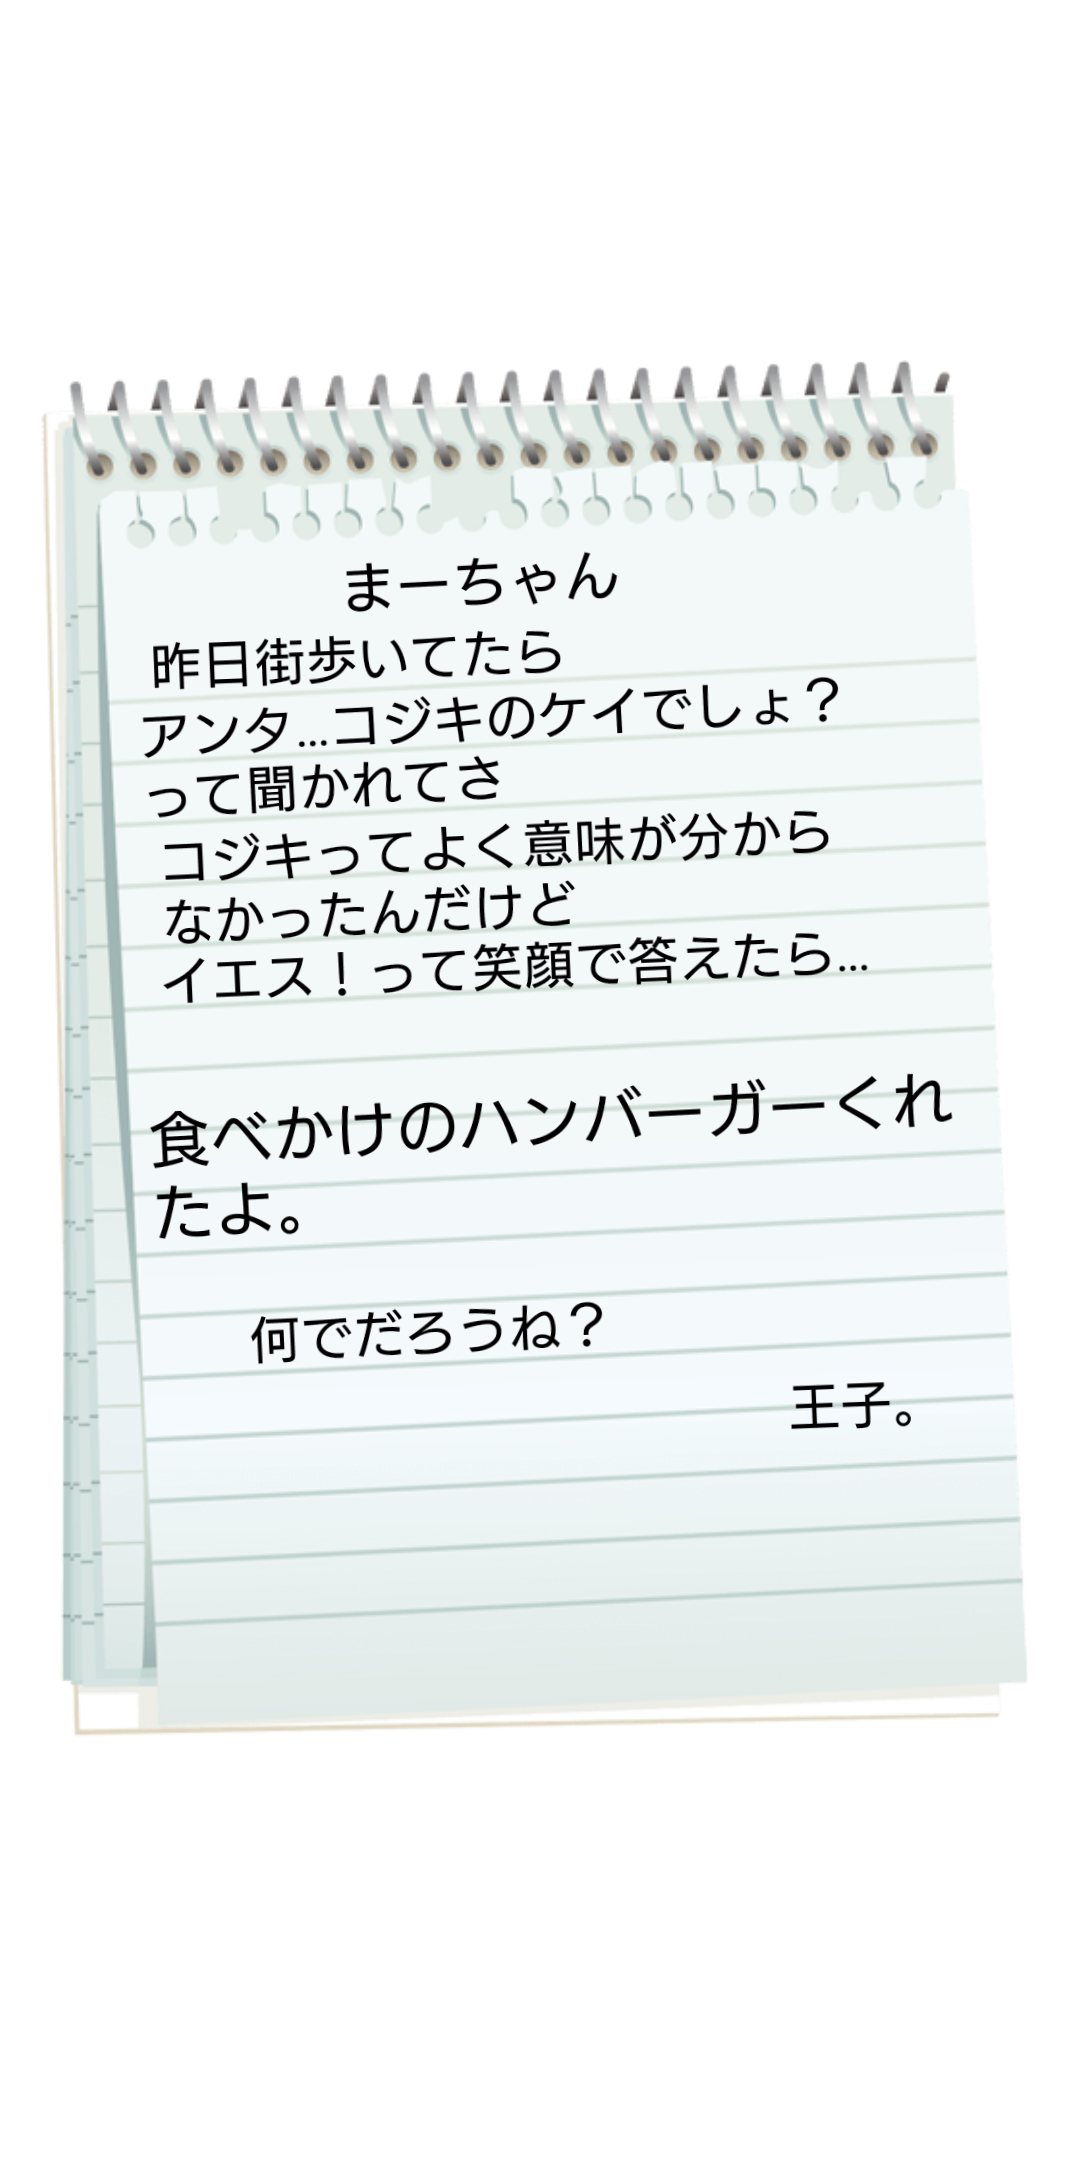 まーちゃん
昨日街歩いてたら
アンタ...コジキのケイでしょ？
って聞かれてさ
コジキってよく意味が分から
なかったんだけど
イエス！って笑顔で答えたら...
食べかけのハンバーガーくれ
たよ。
何でだろうね？
王子。